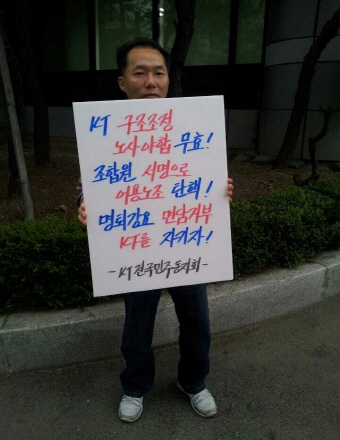 KT 구조조정
노사야합 무효!
조합원 서명으로
어용노조 탄핵!
명퇴강요 면담거부
KT를 지키자!
- KT전국민주동지회 -